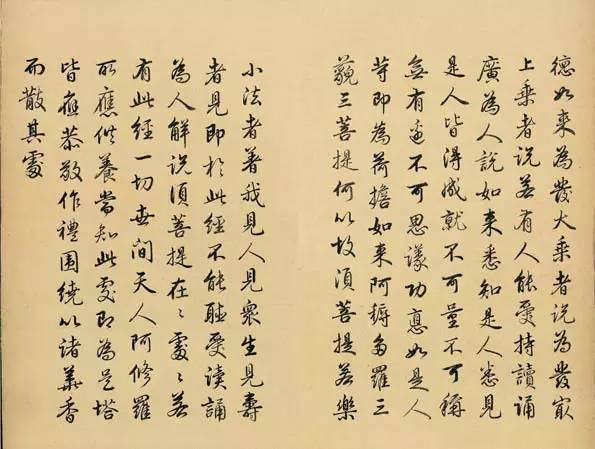 德如来為發大乘者說為發冣
上乘者說若有人能受持讀誦
廣為人說如来悉知是人悉見
是人皆得成就不可量不可稱
無有邊不可思議功德如是人
等即為荷擔如来阿耨多羅三
藐三菩提何以故須菩提若樂
小法者著我見人見衆生見壽
者見即於此經不能聽受讀誦
為人解說須菩提在〻處〻若
有此經一切世間天人阿修羅
所應供養當知此處即為是塔
皆應恭敬作禮圍繞以諸華香
而散其處